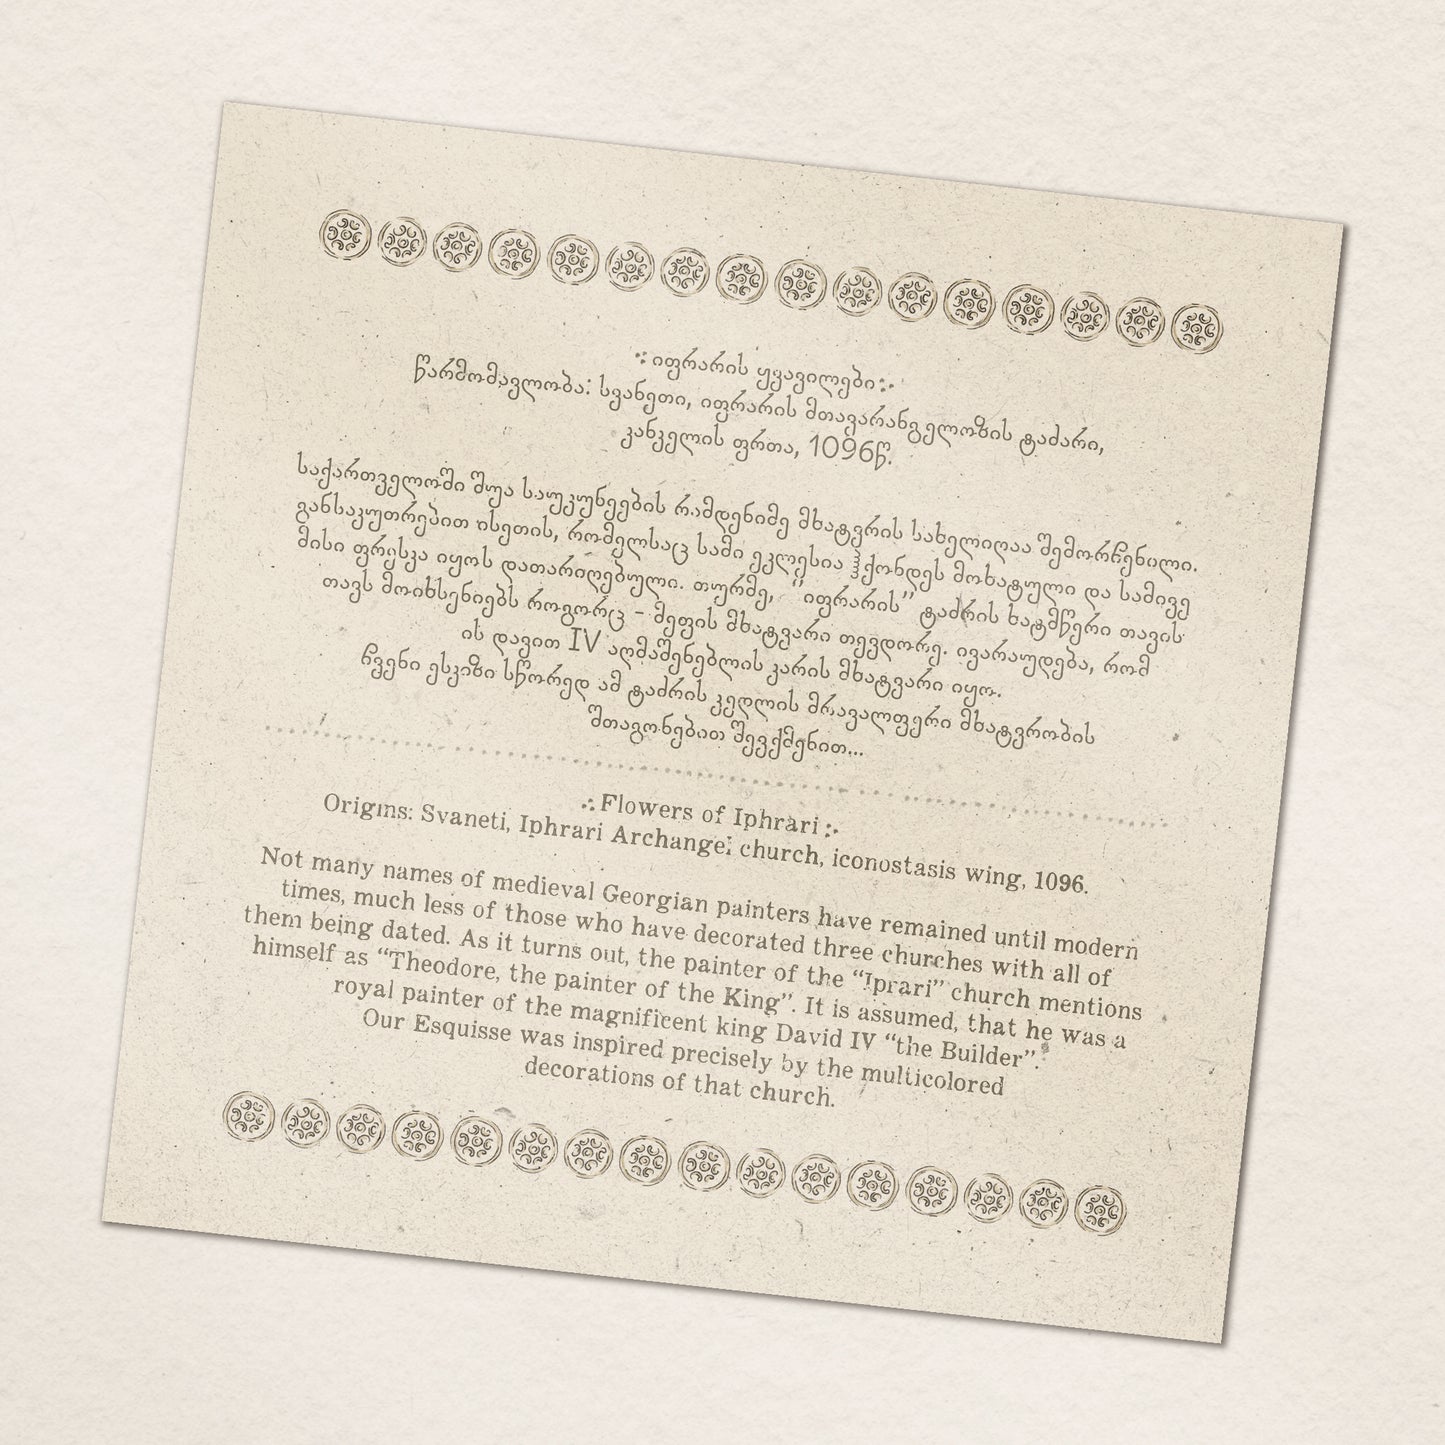 იფრარის ყვავილები
წარმომავლობა: სვანეთი, იფრარის მთავარანგელოზის ტაძარი,
კანკელის ფრთა, 1096წ.
საქართველოში შუა საუკუნეების რამდენიმე მხატვრის სახელიღაა შემორჩენილი.
განსაკუთრებით ისეთის, რომელსაც სამი ეკლესია ჰქონდეს მოხატული და სამივე
მისი ფრესკა იყოს დათარიღებული. თურმე, "იფრარის" ტაძრის ხატმწერი თავის
თავს მოიხსენიებს როგორც - მეფის მხატვარი თევდორე. ივარაუდება, რომ
ის დავით IV აღმაშენებლის კარის მხატვარი იყო.
ჩვენი ესკიზი სწორედ ამ ტაძრის კედლის მრავალფერი მხატვრობის
შთაგონებით შევქმენით...
Flowers of Iphrari
Origins: Svaneti, Iphrari Archangel church, iconostasis wing, 1096.
Not many names of medieval Georgian painters have remained until modern
times, much less of those who have decorated three churches with all of
them being dated. As it turns out, the painter of the “Iprari” church mentions
himself as “Theodore, the painter of the King”. It is assumed, that he was a
royal painter of the magnificent king David IV “the Builder”.
Our Esquisse was inspired precisely by the multicolored
decorations of that church.